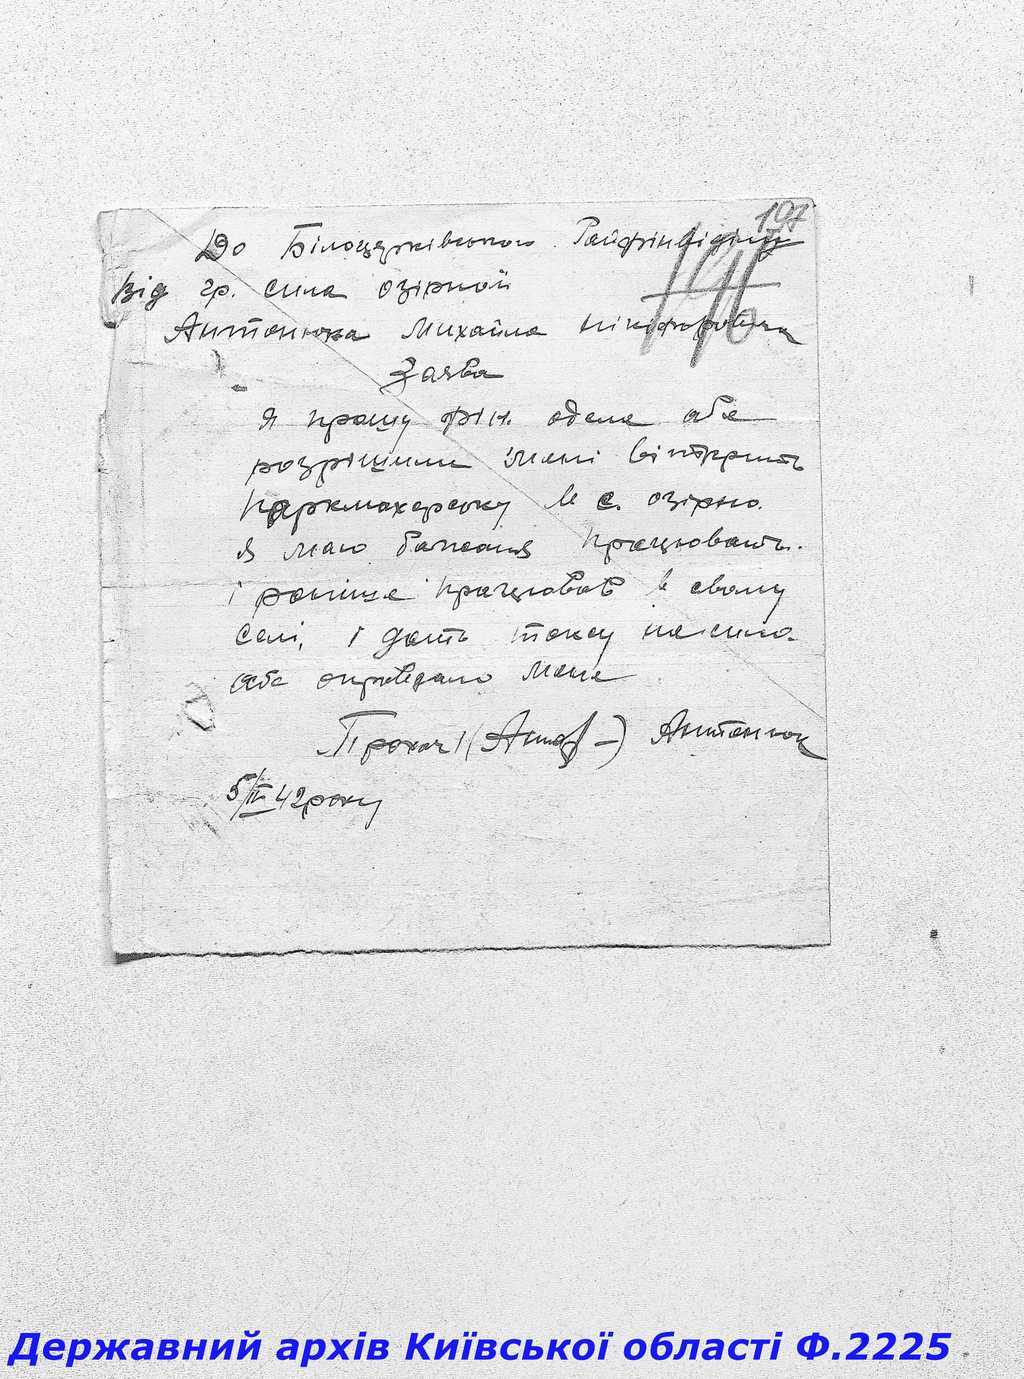 197
196
До Білоцерківського Райфінвіділу
від гр. сила озірной
Антонюка Михайла Нікіфоровича
Заява
Я прошу фін. одела абе
розрішили мені віткрить
паркмахерську в с. озірно.
я маю бажаня працювать.
і раніше працював в свому
селі, і дать таксу на
абе оправдало мене
Прохач Антонюк
5/ІІ 42 року
Державний архів Київської області Ф.2225